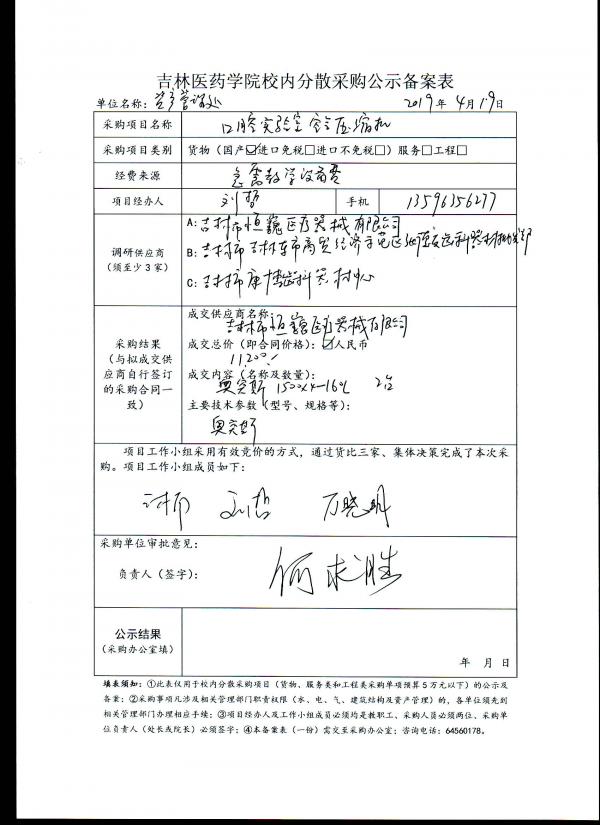 吉林医药学院校内分散采购公示备案表
单位名称：资产管理处 2019年4月19日
采购项目名称 口腔实验室空压缩机
采购项目类别 货物（国产☑进口免税□进口不免税□）服务□工程□
经费来源 急需教学设备费
项目经办人 刘哲 手机 13596356277
调研供应商
（须至少3家）
A：吉林市恒巍医疗器械有限公司
B：吉林市吉林车市商贸经济示范区
C：吉林市康博齿科器材中心
采购结果
（与拟成交供
应商自行签订
的采购合同一
致）
成交供应商名称：
吉林市恒巍医疗器械有限公司
成交总价（即合同价格）：☑人民币
11,200.-
成交内容（名称及数量）：
奥突斯 1500X4-160L 2台
主要技术参数（型号、规格等）：
奥突斯
项目工作小组采用有效竞价的方式，通过货比三家、集体决策完成了本次采
购。项目工作小组成员如下：
刘哲 万晓明
采购单位审批意见：
负责人（签字）： 何求胜
公示结果
（采购办公室填）
年 月 日
填表须知：①此表仅用于校内分散采购项目（货物、服务类和工程类采购单项预算5万元以下）的公示及
备案；②采购事项凡涉及相关管理部门职责权限（水、电、气、建筑结构及资产管理）的，各单位须先到
相关管理部门办理相应手续；③项目经办人及工作小组成员必须均是教职工，采购人员必须两位、采购单
位负责人（处长或院长）必须签字；④本备案表（一份）需交至采购办公室；咨询电话：64560178。